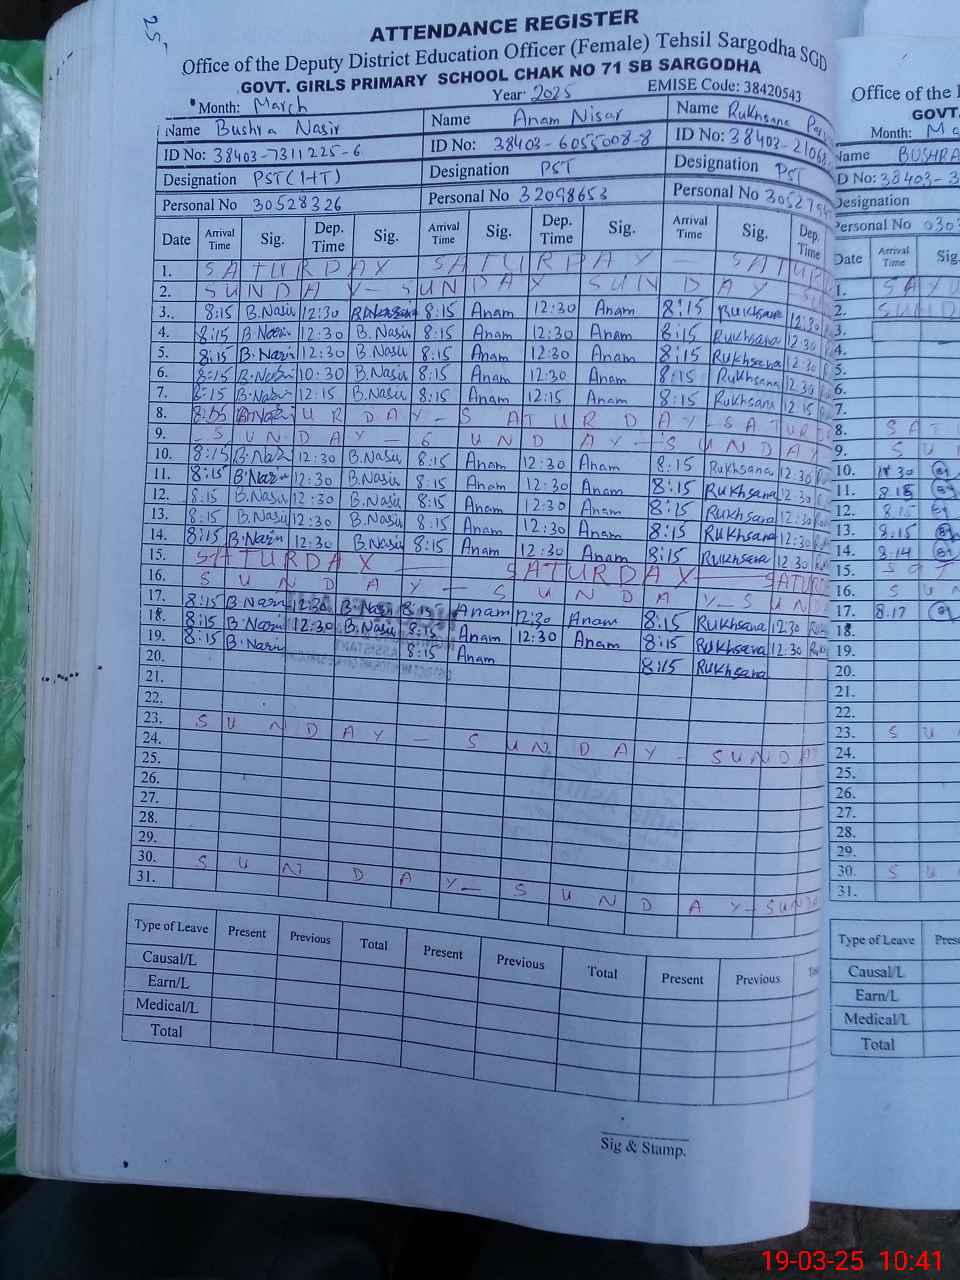 25,
ATTENDANCE REGISTER
Office of the Deputy District Education Officer (Female) Tehsil Sargodha SGD
GOVT. GIRLS PRIMARY SCHOOL CHAK NO 71 SB SARGODHA
Month: March Year 2025 EMISE Code: 38420543
Name Bushra Nasir Name Anam Nisar Name Rukhsana
ID No: 38403-7311225-6 ID No: 38403-6055008-8 ID No: 38403-21068
Designation PST(HT) Designation PST Designation PST
Personal No 30528326 Personal No 32098653 Personal No 305279
Date Arrival Time Sig. Dep. Time Sig. Arrival Time Sig. Dep. Time Sig. Arrival Time Sig. Dep. Time
1. SATURDAY SATURDAY — SATUR
2. SUNDAY — SUNDAY SUNDAY
3. 8:15 B.Nasir 12:30 8:15 Anam 12:30 Anam 8:15 Rukhsana 12:30
4. 8:15 B.Nasir 12:30 B.Nasir 8:15 Anam 12:30 Anam 8:15 Rukhsana 12:30
5. 8:15 B.Nasir 12:30 B.Nasir 8:15 Anam 12:30 Anam 8:15 Rukhsana 12:30
6. 8:15 B.Nasir 10:30 B.Nasir 8:15 Anam 12:30 Anam 8:15 Rukhsana 12:30
7. 8:15 B.Nasir 12:15 B.Nasir 8:15 Anam 12:15 Anam 8:15 Rukhsana 12:15
8. URDAY — SATURDAY — SATUR
9. — SUNDAY — SUNDAY — SUNDAY
10. 8:15 B.Nasir 12:30 B.Nasir 8:15 Anam 12:30 Anam 8:15 Rukhsana 12:30
11. 8:15 B.Nasir 12:30 B.Nasir 8:15 Anam 12:30 Anam 8:15 Rukhsana 12:30
12. 8:15 B.Nasir 12:30 B.Nasir 8:15 Anam 12:30 Anam 8:15 Rukhsana 12:30
13. 8:15 B.Nasir 12:30 B.Nasir 8:15 Anam 12:30 Anam 8:15 Rukhsana 12:30
14. 8:15 B.Nasir 12:30 B.Nasir 8:15 Anam 12:30 Anam 8:15 Rukhsana 12:30
15. SATURDAY — SATURDAY — SATUR
16. SUNDAY — SUNDAY — SUND
17. 8:15 B.Nasir 12:30 B.Nasir 8:15 Anam 12:30 Anam 8:15 Rukhsana 12:30
18. 8:15 B.Nasir 12:30 B.Nasir 8:15 Anam 12:30 Anam 8:15 Rukhsana 12:30
19. 8:15 B.Nasir 8:15 Anam 8:15 Rukhsana
20.
21.
22.
23. SUNDAY — SUNDAY — SUNDA
24.
25.
26.
27.
28.
29.
30. SUNDAY — SUNDAY — SUND
31.
Type of Leave Present Previous Total Present Previous Total Present Previous
Causal/L
Earn/L
Medical/L
Total
Sig & Stamp.
Office of the
GOVT.
Month: Ma
Name BUSHRA
ID No: 38403-3
Designation
Personal No 030
Date Arrival Time Sig.
1. SA
2. SUND
3.
4.
5.
6.
7.
8. SAT
9. SU
10. 11:30
11. 8:15
12. 8:15
13. 8:15
14. 8:14
15. SAT
16. SUN
17. 8:17
18.
19.
20.
21.
22.
23. SU
24.
25.
26.
27.
28.
29.
30. SU
31.
Type of Leave Pres
Causal/L
Earn/L
Medical/L
Total
19-03-25 10:41